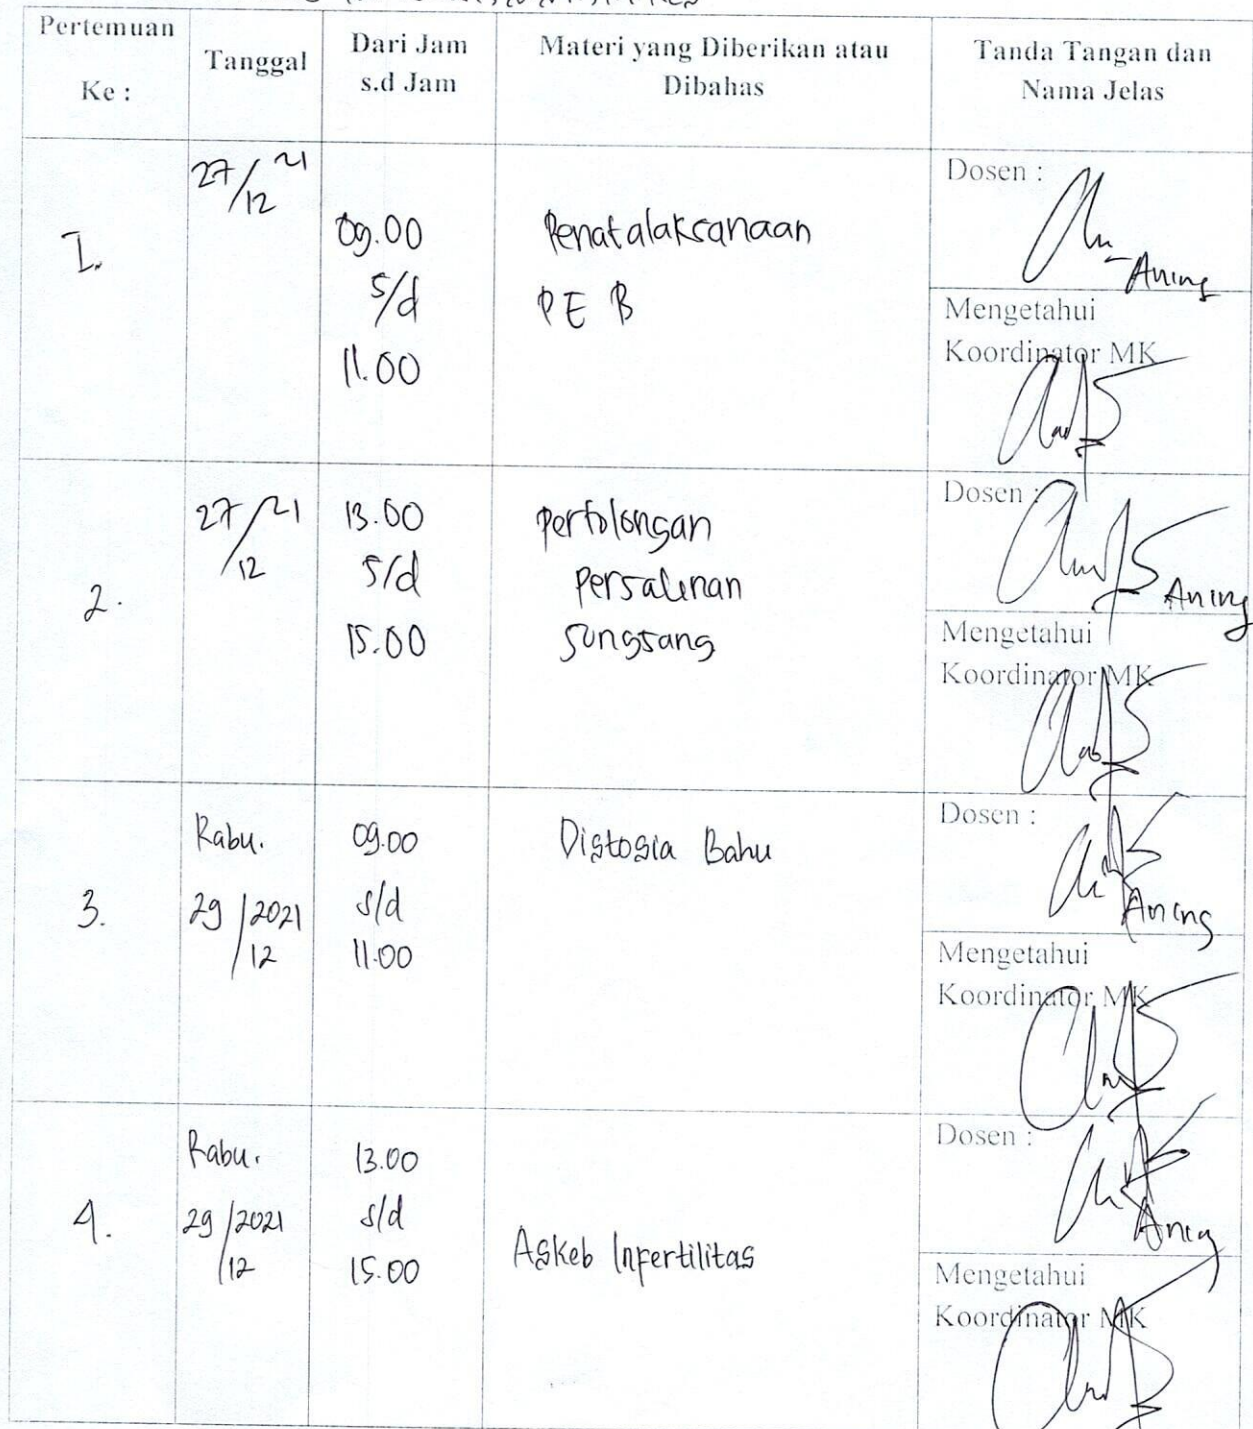 Pertemuan
Ke :
Tanggal
Dari Jam
s.d Jam
Materi yang Diberikan atau
Dibahas
Tanda Tangan dan
Nama Jelas
I.
27/12 21
09.00
s/d
11.00
Penatalaksanaan
PE B
Dosen :
Aning
Mengetahui
Koordinator MK
2.
27/21
12
13.00
s/d
15.00
pertolongan
persalinan
sungsang
Dosen :
Aning
Mengetahui
Koordinator MK
3.
Rabu.
29/2021
12
09.00
s/d
11.00
Distosia Bahu
Dosen :
Aning
Mengetahui
Koordinator MK
4.
Rabu.
29/2021
12
13.00
s/d
15.00
Askeb Infertilitas
Dosen :
Aning
Mengetahui
Koordinator MK